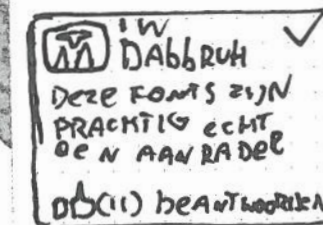 1W
DAbbRUH
DEZE FONTS ZIJN
PRACHTIG ECHT
EEN AANRADER
(11) BEANTWOORDEN